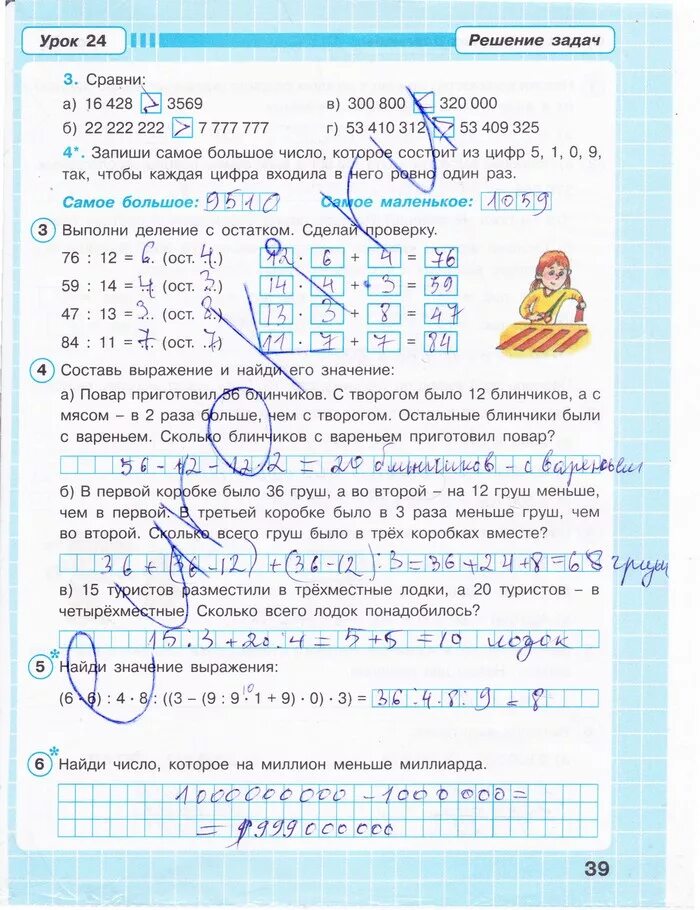 Урок 24
Решение задач
3. Сравни:
а) 16 428 > 3569
в) 300 800 < 320 000
б) 22 222 222 > 7 777 777
г) 53 410 312 > 53 409 325
4*. Запиши самое большое число, которое состоит из цифр 5, 1, 0, 9,
так, чтобы каждая цифра входила в него ровно один раз.
Самое большое: 9510 Самое маленькое: 1059
3 Выполни деление с остатком. Сделай проверку.
76 : 12 = 6 (ост. 4) 12 · 6 + 4 = 76
59 : 14 = 4 (ост. 3) 14 · 4 + 3 = 59
47 : 13 = 3 (ост. 8) 13 · 3 + 8 = 47
84 : 11 = 7 (ост. 7) 11 · 7 + 7 = 84
4 Составь выражение и найди его значение:
а) Повар приготовил 56 блинчиков. С творогом было 12 блинчиков, а с
мясом – в 2 раза больше, чем с творогом. Остальные блинчики были
с вареньем. Сколько блинчиков с вареньем приготовил повар?
56 - 12 - 12·2 = 20 блинчиков - с вареньем
б) В первой коробке было 36 груш, а во второй – на 12 груш меньше,
чем в первой. В третьей коробке было в 3 раза меньше груш, чем
во второй. Сколько всего груш было в трёх коробках вместе?
36 + (36 - 12) + (36 - 12) : 3 = 36 + 24 + 8 = 68 груш
в) 15 туристов разместили в трёхместные лодки, а 20 туристов – в
четырёхместные. Сколько всего лодок понадобилось?
15 : 3 + 20 : 4 = 5 + 5 = 10 лодок
5* Найди значение выражения:
(6 · 6) : 4 · 8 : ((3 – (9 : 9 · 1 + 9) · 0) · 3) = 36 : 4 · 8 : 9 = 8
10
6* Найди число, которое на миллион меньше миллиарда.
1000000000 - 1000000 =
= 999000000
39